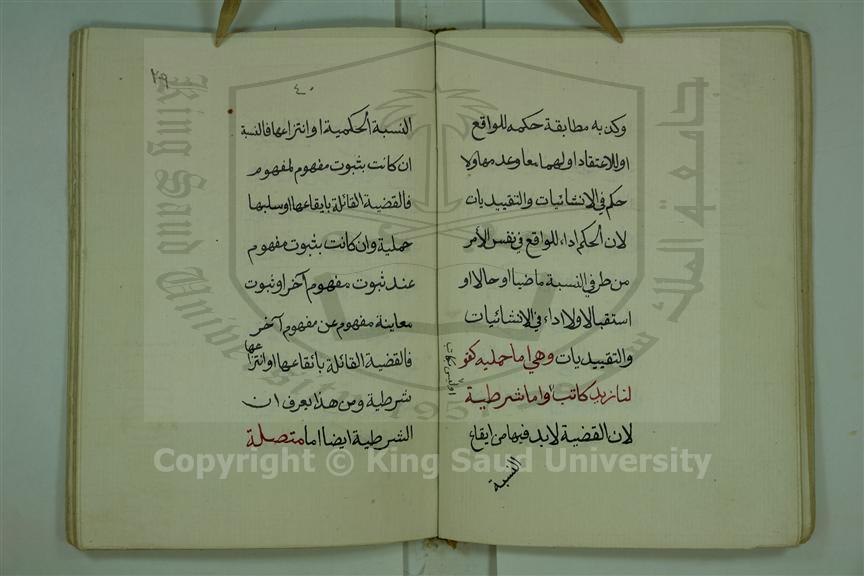 وكذبه مطابقة حكمه للواقع
او للاعتقاد او لهما معا وعدمها ولا
حكم في الانشائيات والتقييديات
لان الحكم اداء للواقع في نفس الأمر
من طرفي النسبة ماضيا او حالا او
استقبالا ولا اداء في الانشائيات
والتقييديات وهي اما حمليه كقو
لنا زيد كاتب واما شرطية
او ليس بكاتب
لان القضية لابد فيها من ايقاع
النسبة
٣٩
٤٠
النسبة الحكمية او انتزاعها فالنسبة
ان كانت بثبوت مفهوم لمفهوم
فالقضية القائلة بايقاعها او سلبها
حملية وان كانت بثبوت مفهوم
عند ثبوت مفهوم آخر او ثبوت
معاينة مفهوم عن مفهوم آخر
فالقضية القائلة بائقاعها او انتزاعها
شرطية ومن هذا يعرف ان
الشرطية ايضا اما متصلة
جامعة الملك سعود
King Saud University
1957
Copyright © King Saud University